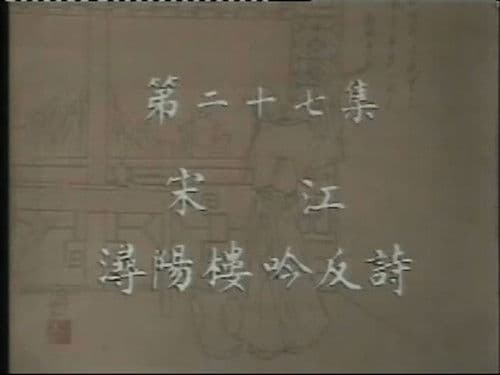 第二十七集
宋江
潯陽樓吟反詩